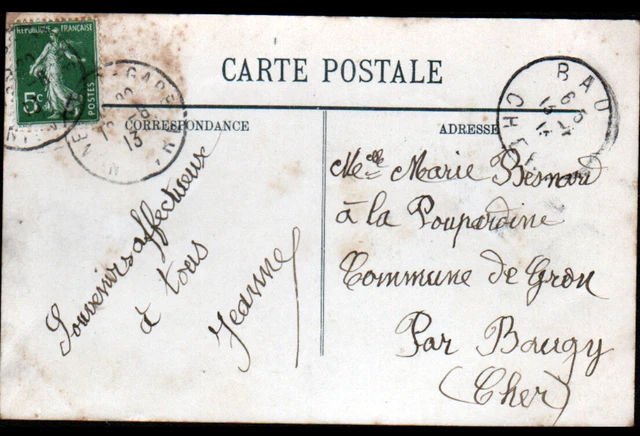 RÉPUBLIQUE FRANÇAISE
5c
POSTES
CARTE POSTALE
GARE
13
BAU
CHE
CORRESPONDANCE
ADRESSE
Souvenirs affectueux
à tous
Jeanne
Melle Marie Besnard
à la Poupardine
Commune de Gron
Par Baugy
(Cher)